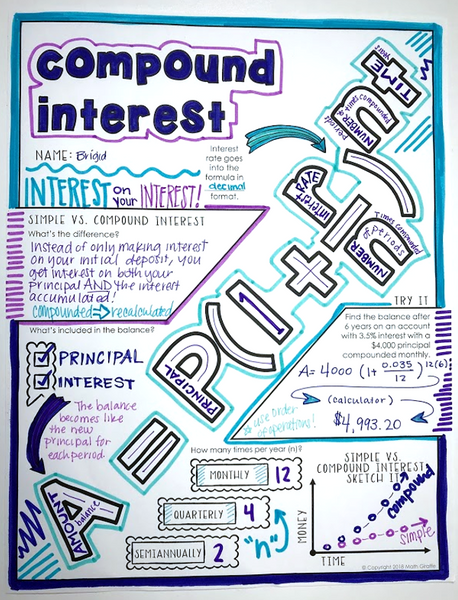 compound
interest
NAME: Brigid
Interest rate
rate goes
into the
formula in
decimal
format.
INTEREST on your INTEREST!
SIMPLE VS. COMPOUND INTEREST
What's the difference?
Instead of only making interest
on your initial deposit, you
get interest on both your
principal AND the interest
accumulated!
compounded ⇒ recalculated
What's included in the balance?
PRINCIPAL
INTEREST
The balance
becomes like
the new
principal for
each period.
A = P(1 + r/n)^nt
AMOUNT
balance
PRINCIPAL
interest
RATE
NUMBER of periods
Times compounded
NUMBER of times compounded
periods
TIME
years
TRY IT
Find the balance after
6 years on an account
with 3.5% interest with a
$4,000 principal
compounded monthly.
A= 4000 (1+ 0.035/12)^12(6)
(calculator)
$4,993.20
* use order
of operations!
How many times per year (n)?
MONTHLY 12
QUARTERLY 4
SEMIANNUALLY 2
"n"
SIMPLE VS.
COMPOUND INTEREST
SKETCH IT
MONEY
compound
simple
TIME
© Copyright 2018 Math Giraffe